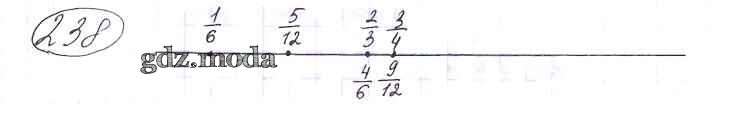 238
1/6 5/12 2/3 3/4
gdz.moda
4/6 9/12